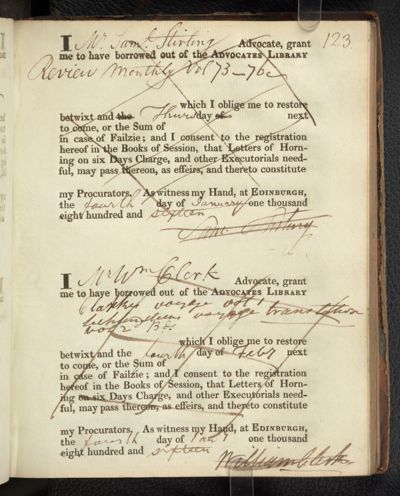 123
I Mr. Saml. Stirling Advocate, grant
me to have borrowed out of the ADVOCATES LIBRARY
Review Monthly Vol 73-76
which I oblige me to restore
betwixt and the Thursday of next
to come, or the Sum of
in case of Failzie; and I consent to the registration
hereof in the Books of Session, that Letters of Horn-
ing on six Days Charge, and other Executorials need-
ful, may pass thereon, as effeirs, and thereto constitute
my Procurators. As witness my Hand, at EDINBURGH,
the fourth day of January one thousand
eight hundred and sixteen
Saml Stirling
I Mr Wm Clerk Advocate, grant
me to have borrowed out of the ADVOCATES LIBRARY
Clarkes voyage
voyage translation
vol 2
which I oblige me to restore
betwixt and the fourth day of Feby next
to come, or the Sum of
in case of Failzie; and I consent to the registration
hereof in the Books of Session, that Letters of Horn-
ing on six Days Charge, and other Executorials need-
ful, may pass thereon, as effeirs, and thereto constitute
my Procurators. As witness my Hand, at EDINBURGH,
the fourth day of one thousand
eight hundred and sixteen
William Clerk